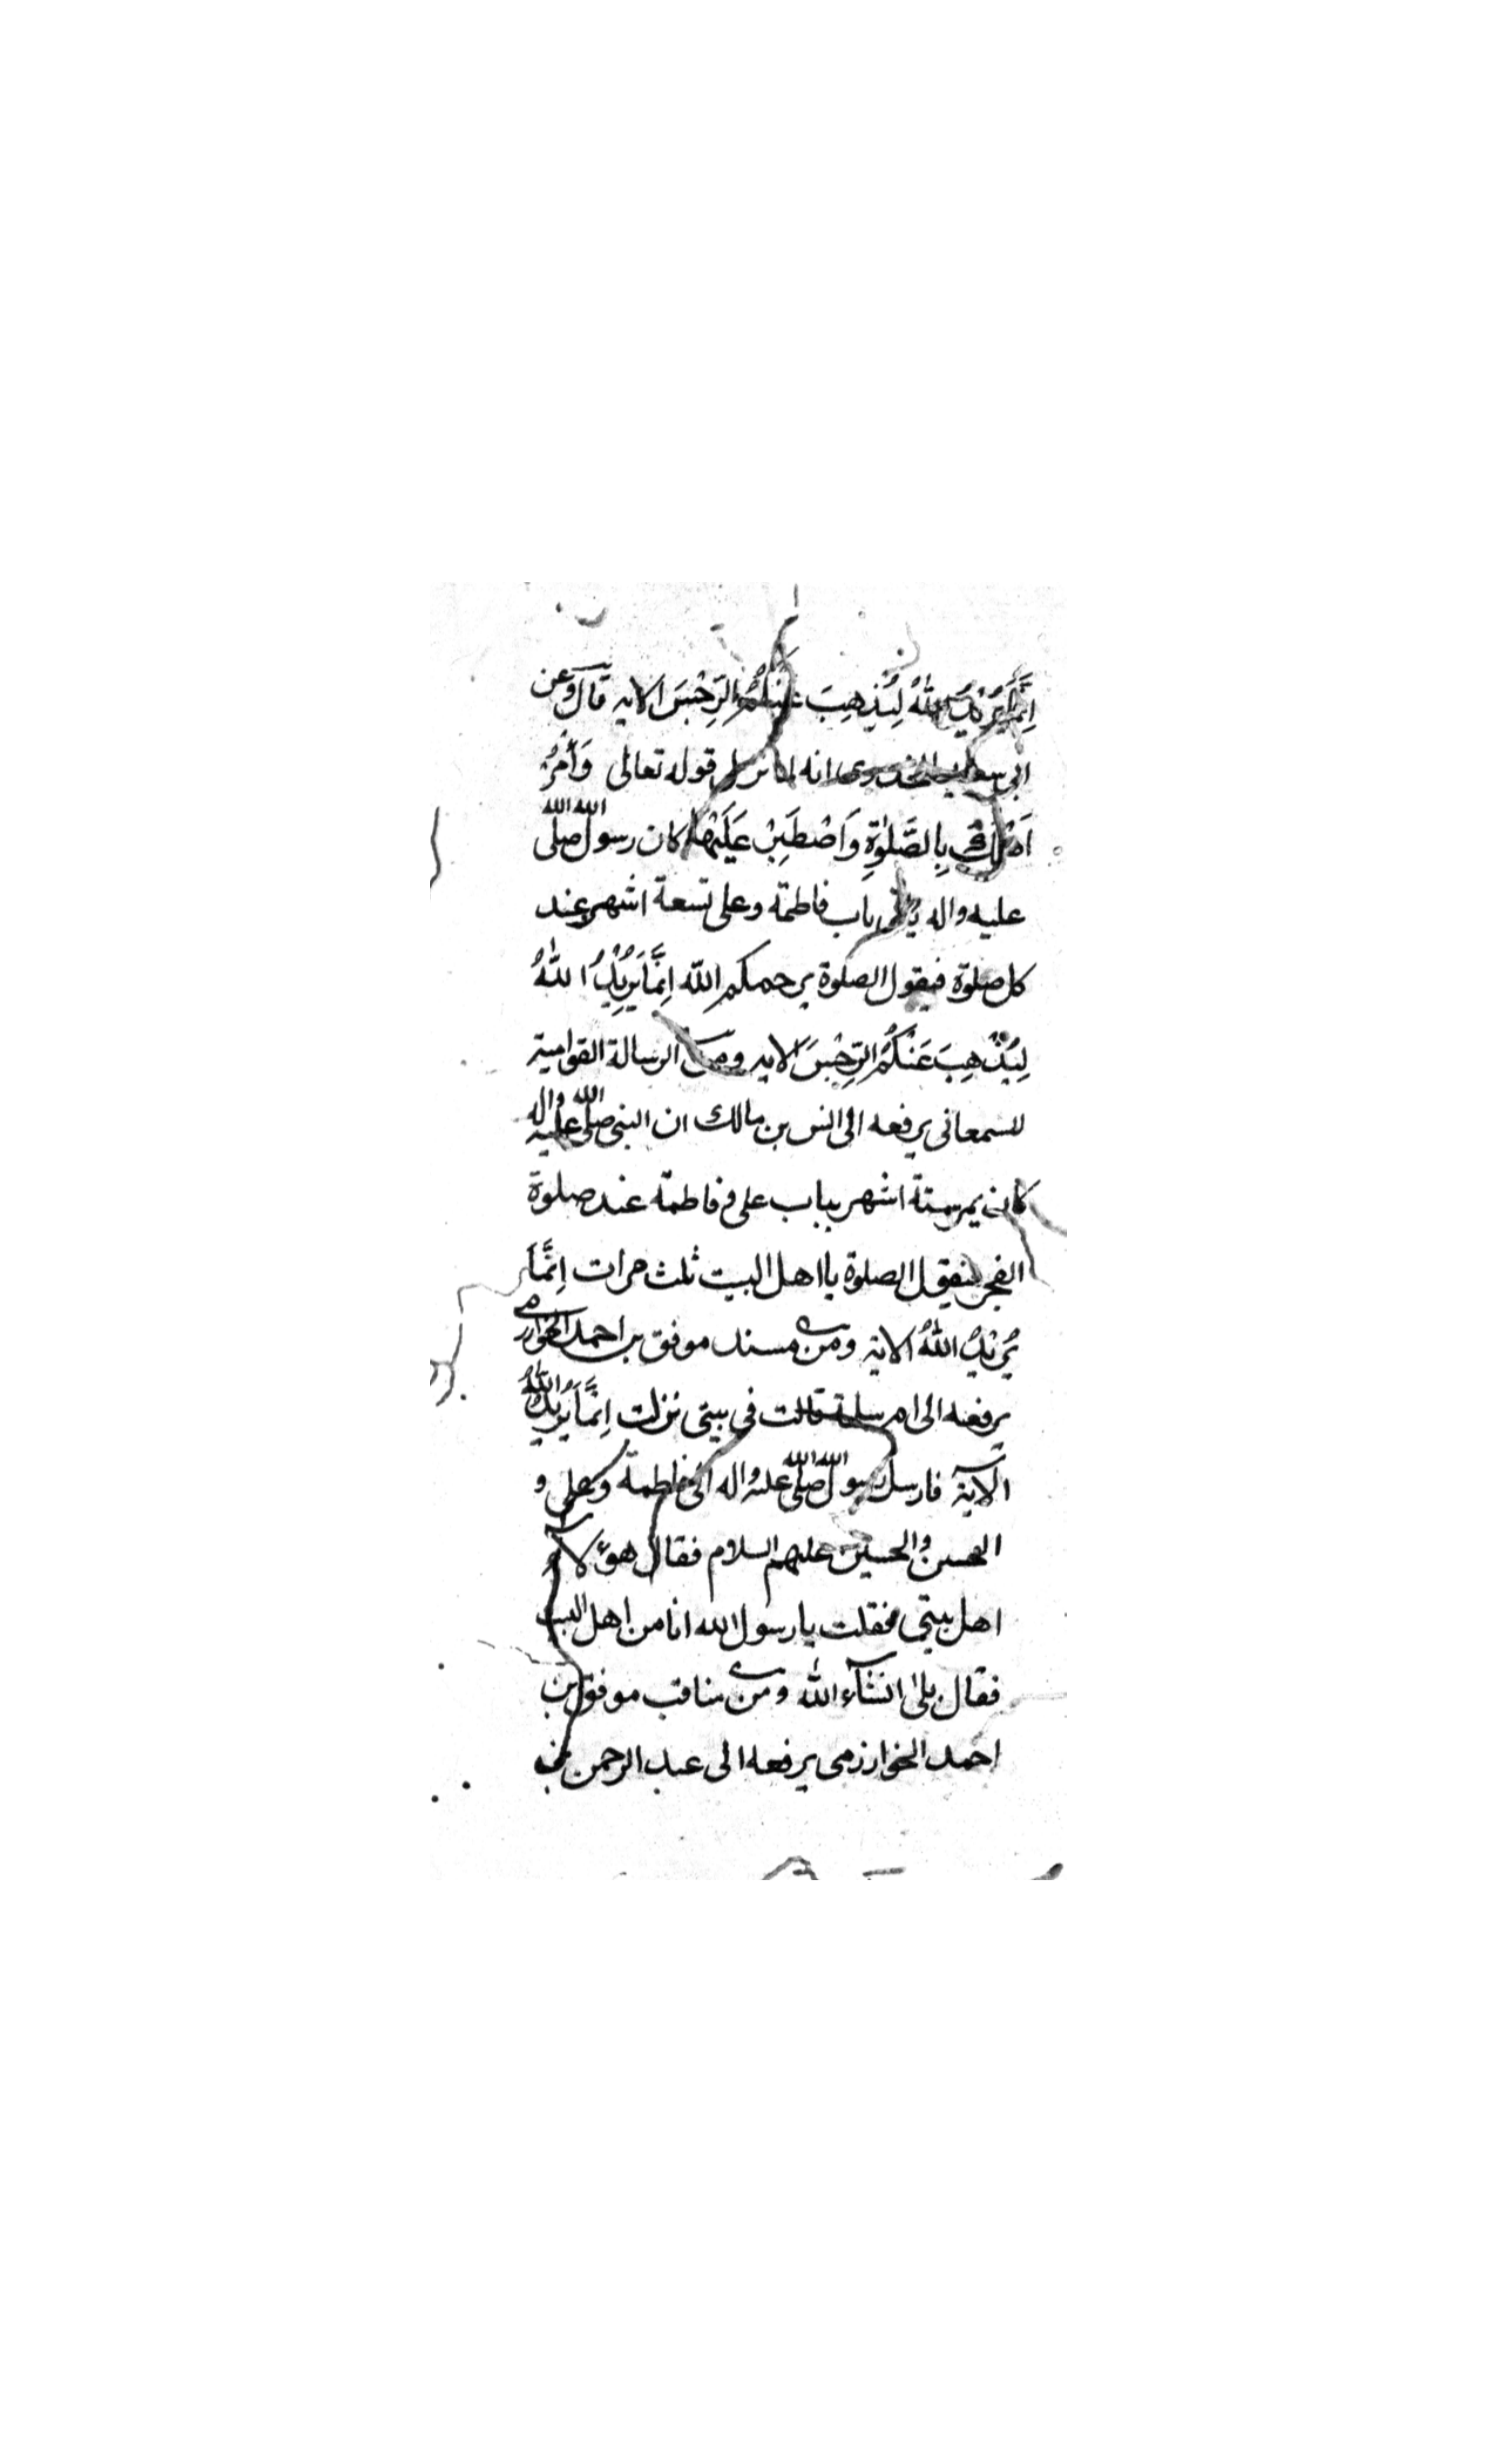 اِنَّمَا يُرِيْدُ اللّٰهُ لِيُذْهِبَ عَنْكُمُ الرِّجْسَ الايه قال وعن
ابى سعيد الخدرى انه لما نزل قوله تعالى وَأْمُرْ
اَهْلَكَ بِالصَّلٰوةِ وَاصْطَبِرْ عَلَيْهَا كان رسول الله صلى الله
عليه واله ياتى باب فاطمة وعلى تسعة اشهر عند
كل صلوة فيقول الصلوة يرحمكم الله اِنَّمَا يُرِيْدُ اللّٰهُ
لِيُذْهِبَ عَنْكُمُ الرِّجْسَ الايه ومن الرسالة القوامية
للسمعانى يرفعه الى انس بن مالك ان النبى صلى الله عليه واله
كان يمر ستة اشهر بباب على و فاطمة عند صلوة
الفجر فيقول الصلوة يا اهل البيت ثلث مرات اِنَّمَا
يُرِيْدُ اللّٰهُ الاية ومن مسند موفق بن احمد الخوارزمى
يرفعه الى ام سلمة قالت فى بيتى نزلت اِنَّمَا يُرِيْدُ اللّٰهُ
الآية فارسل رسول الله صلى الله عليه واله الى فاطمة وعلى و
الحسن والحسين عليهم السلام فقال هؤلآء
اهل بيتى فقلت يا رسول الله انا من اهل البيت
فقال بلى انشآء الله ومن مناقب موفق بن
احمد الخوارزمى يرفعه الى عبد الرحمن بن